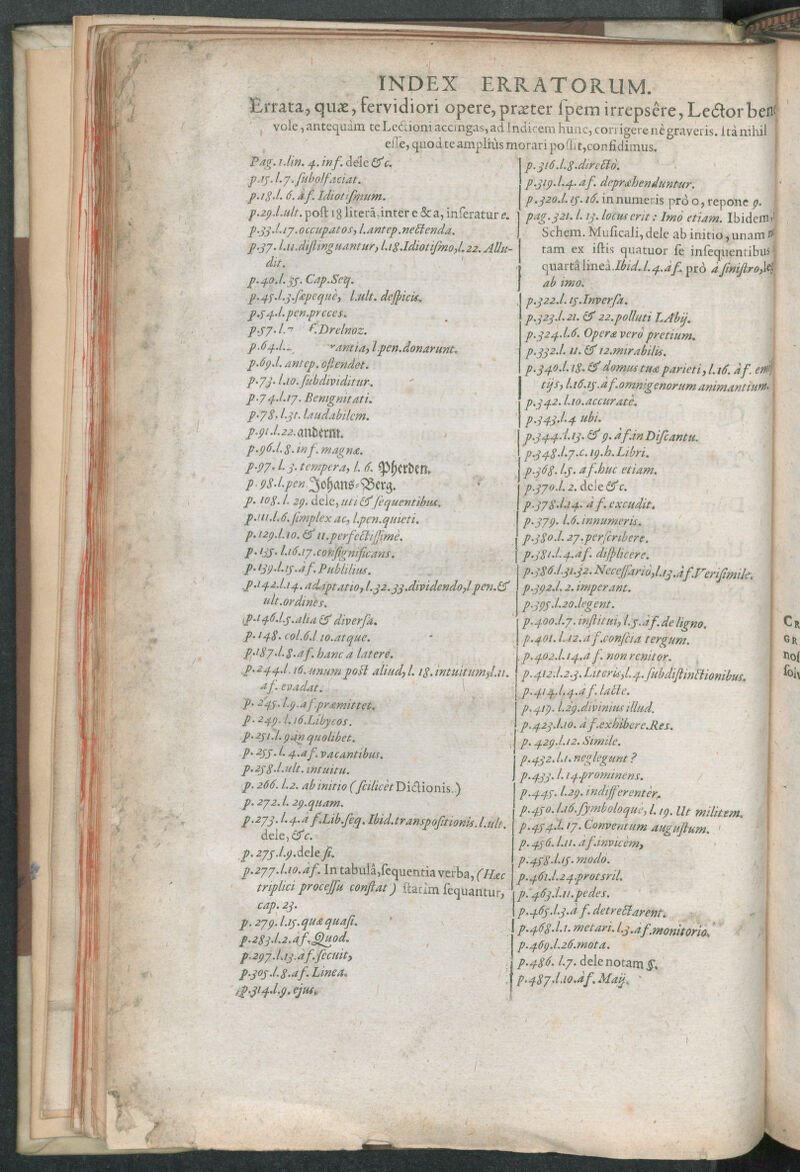 INDEX ERRATORUM.
Errata, quæ, fervidiori opere, præter ſpem irrepsêre, Lector ben
vole, antequàm te Lectioni accingas, ad Indicem hunc, corrigere nè graveris. Ità nihil
eſſe, quod te ampliùs morari poſſit, confidimus.
Pag. 1. lin. 4. inf. dele &c.
p. 15. l. 7. ſubolfaciat.
p. 18. l. 6. àf. Idiotiſmum.
p. 29. l. ult. poſt 18 literâ, inter e & a, inſeratur e.
p. 33. l. 17. occupatos, l. antep. nectenda.
p. 37. l. 11. diſtinguantur, l. 18. Idiotiſmo, l. 22. Allu-
dit.
p. 40. l. 35. Cap. Seq.
p. 45. l. 3. ſæpequè, l. ult. deſpicis.
p. 54. l. pen. preces.
p. 57. l. f. Drelnoz.
p. 64. l. antia, l pen. donarunt.
p. 69. l. antep. oſtendet.
p. 73. l. 10. ſubdividitur.
p. 74. l. 17. Benignitati.
p. 78. l. 31. laudabilem.
p. 91. l. 22. andernt.
p. 96. l. 8. inf. magnæ.
p. 97. l. 3. tempera, l. 6. Pherden.
p. 98. l. pen. Johans-Berg.
p. 108. l. 29. dele, uti & ſequentibus.
p. 111. l. 6. ſimplex ac, l. pen. quieti.
p. 129. l. 10. & 11. perfectiſſimè.
p. 135. l. 16. 17. conſignificans.
p. 139. l. 15. àf. Publilius.
p. 142. l. 14. adaptatio, l. 32. 33. dividendo, l pen. &
ult. ordines.
p. 146. l. 5. alia & diverſa.
p. 148. col. 6. l. 10. atque.
p. 187. l. 8. af. hanc a latere.
p. 244. l. 16. unum post aliud, l. 18. intuitum, l. 11.
af. evadat.
p. 245. l. 9. af. præmittet.
p. 249. l. 16. Libycos.
p. 251. l. 9. in quolibet.
p. 255. l. 4. af. vacantibus.
p. 258. l. ult. intuitu.
p. 266. l. 2. ab initio (ſcilicèt Dictionis.)
p. 272. l. 29. quam.
p. 273. l. 4. àf. Lib. ſeq. Ibid. transpoſitionis. l. ult.
dele, &c.
p. 275. l. 9. dele ſi.
p. 277. l. 10. àf. In tabulâ, ſequentia verba, (Hæc
triplici proceſſu conſtat) ſtatim ſequantur,
cap. 23.
p. 279. l. 15. quæ quaſi.
p. 283. l. 2. àf. Quod.
p. 297. l. 13. àf. ſecuit,
p. 305. l. 8. af. Linea.
p. 314. l. 9. ejus.
p. 316. l. 8. directò.
p. 319. l. 4. af. depræhenduntur.
p. 320. l. 15. 16. in numeris prò 0, repone 9.
pag. 321. l. 13. locus erit: Imò etiam. Ibidem,
Schem. Muſicali, dele ab initio, unam
tam ex iſtis quatuor ſe inſequentibus
quartâ lineâ. Ibid. l. 4. àf. prò à ſiniſtro,
ab imo.
p. 322. l. 15. Inverſa.
p. 323. l. 21. & 22. polluti LAbij.
p. 324. l. 6. Operæ verò pretium.
p. 332. l. 11. & 12. mirabilis.
p. 340. l. 18. & domus tuæ parieti, l. 16. àf.
tijs, l. 16. 15. àf. omnigenorum animantium.
p. 342. l. 10. accuratè.
p. 343. l. 4 ubi.
p. 344. l. 13. & 9. àf. in Diſcantu.
p. 348. l. 7. c. 19. h. Libri.
p. 368. l. 5. af. huc etiam.
p. 370. l. 2. dele &c.
p. 378. l. 14. àf. excudit.
p. 379. l. 6. innumeris.
p. 380. l. 27. perſcribere.
p. 381. l. 4. af. diſplicere.
p. 386. l. 31. 32. Neceſſariò, l. 13. àf. Veriſimile.
p. 392. l. 2. imperant.
p. 395. l. 20. legent.
p. 400. l. 7. inſtitui, l. 5. àf. de ligno.
p. 401. l. 12. àf. conſcia tergum.
p. 402. l. 14. af. non renitor.
p. 412. l. 2. 3. Literis, l. 4. ſubdiſtinctionibus.
p. 414. l. 4. af. lacte.
p. 419. l. 29. divinius illud.
p. 423. l. 10. àf. exhibere. Res.
p. 429. l. 12. Simile.
p. 432. l. 1. neglegunt?
p. 433. l. 14. prominens.
p. 445. l. 29. indifferenter.
p. 450. l. 16. ſymboloquè, l. 19. Ut militem.
p. 454. l. 17. Conventum auguſtum.
p. 456. l. 11. af. invicèm,
p. 458. l. 15. modo.
p. 461. l. 24. protsril.
p. 463. l. 11. pedes.
p. 465. l. 3. àf. detrectarent.
p. 468. l. 1. metari. l. 3. àf. monitorio.
p. 469. l. 26. mota.
p. 486. l. 7. dele notam §.
p. 487. l. 10. àf. Maij.
CR
GR
noſ
ſolv